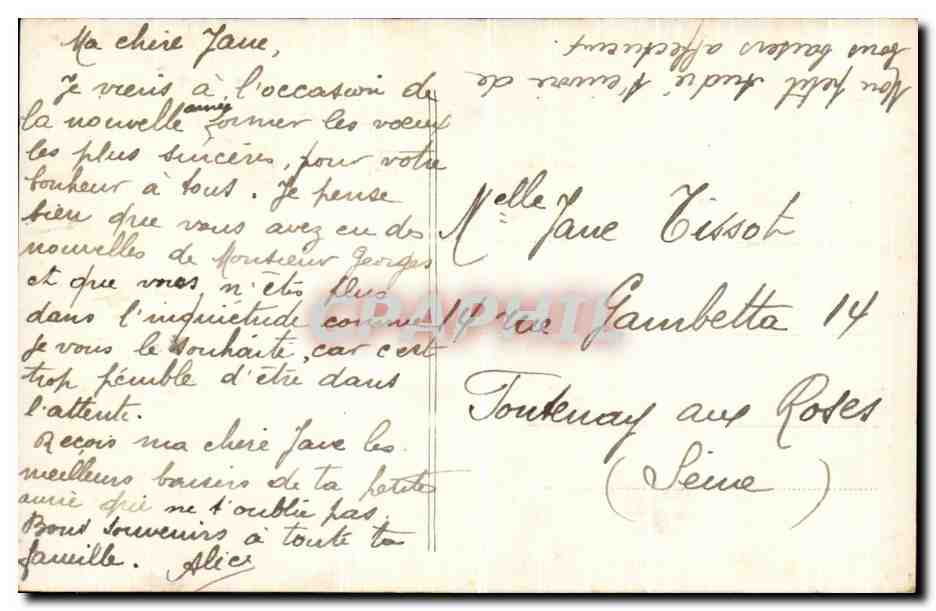 Ma chère Jane,
Je viens à l'occasion de
la nouvelle année former les vœux
les plus sincères, pour votre
bonheur à tous. Je pense
bien que vous avez eu des
nouvelles de Monsieur Georges
et que vous n'êtes plus
dans l'inquiétude comme
je vous le souhaite, car c'est
trop pénible d'être dans
l'attente.
Reçois ma chère Jane les
meilleurs baisers de ta petite
amie qui ne t'oublie pas.
Bons souvenirs à toute ta
famille. Alice
Mon petit André t'envoie de
bons baisers affectueux.
Melle Jane Tissot
14 rue Gambetta 14
Fontenay aux Roses
(Seine)
CPAPHIL